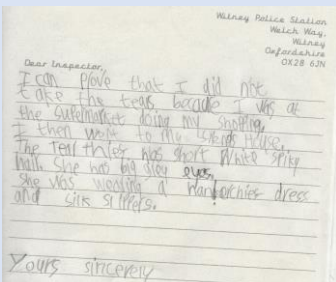 Witney Police Station
Welch Way,
Witney
Oxfordshire
OX28 6JN
Dear Inspector,
I can prove that I did not
take the tears because I was at
the supermarket doing my shopping.
I then went to my House.
The real thief has short white spike
hair. She has big grey eyes,
she was wearing a dress
and silk slippers.
Yours sincerely